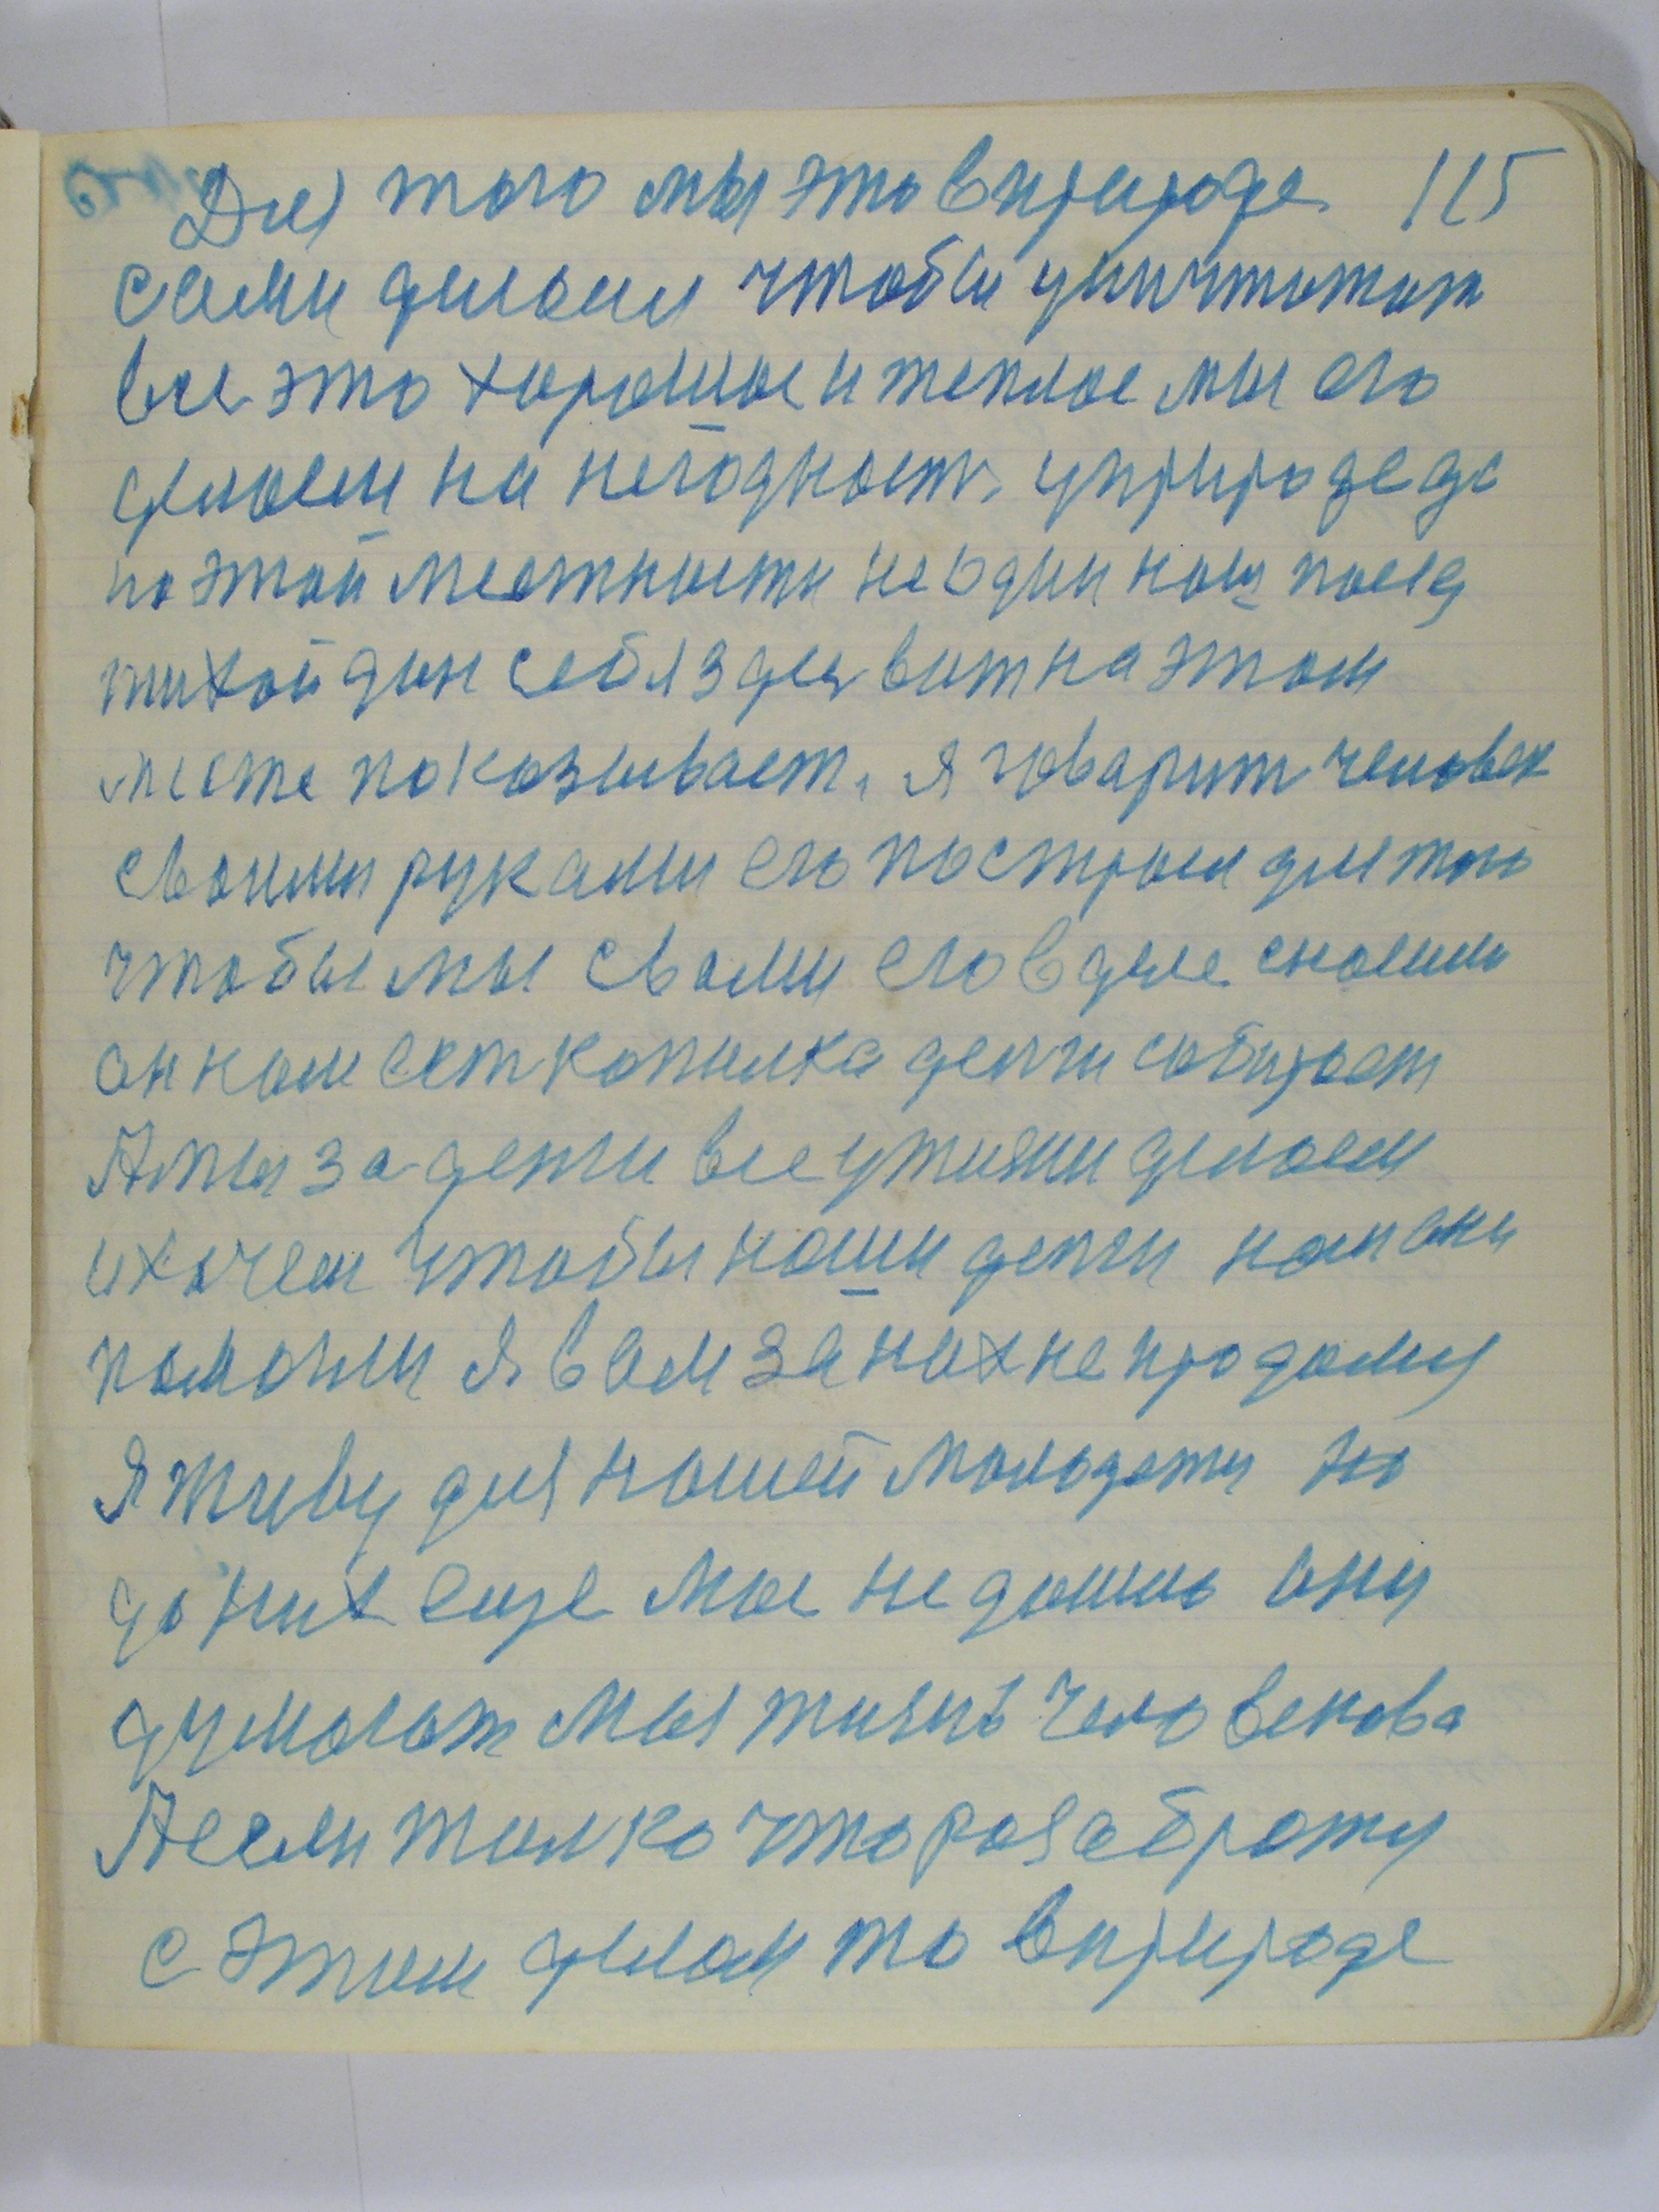 Для того мы это в природе 115
сами делаем чтобы уничтожат
все это хорошое и теплое мы его
делаем на негодност, у природе де
по этой местности не один наш поезд
тихой ден себя здес вит на этом
месте показывает. я говарит человек
своими руками его построел для того
чтобы мы свами его в деле сносили
он нам ест копилка денги собирает
А мы за денги все у жизни делаем
и хочем чтобы наши денги нам они
помогли Я вам за них не продамся
Я живу для нашей молодежи но
до них еще мое не дошло они
думают мы жизнь человекова
А если толко что разабротся
с этим делом то в природе